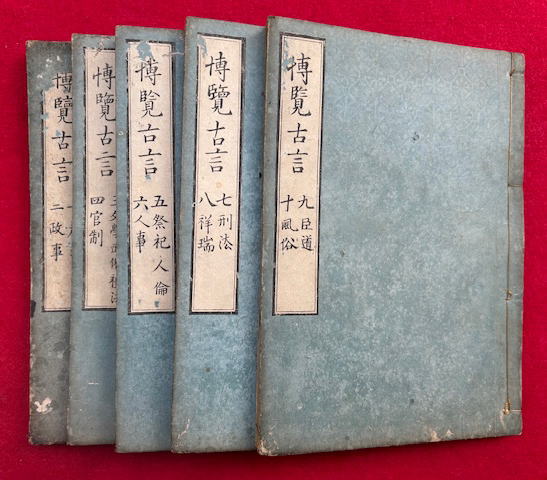 博覧古言
九臣道
十風俗
博覽古言
七刑法
八祥瑞
博覧古言
五祭祀人倫
六人事
博覽古言
三文學武備
四官制
博覽古言
二政事